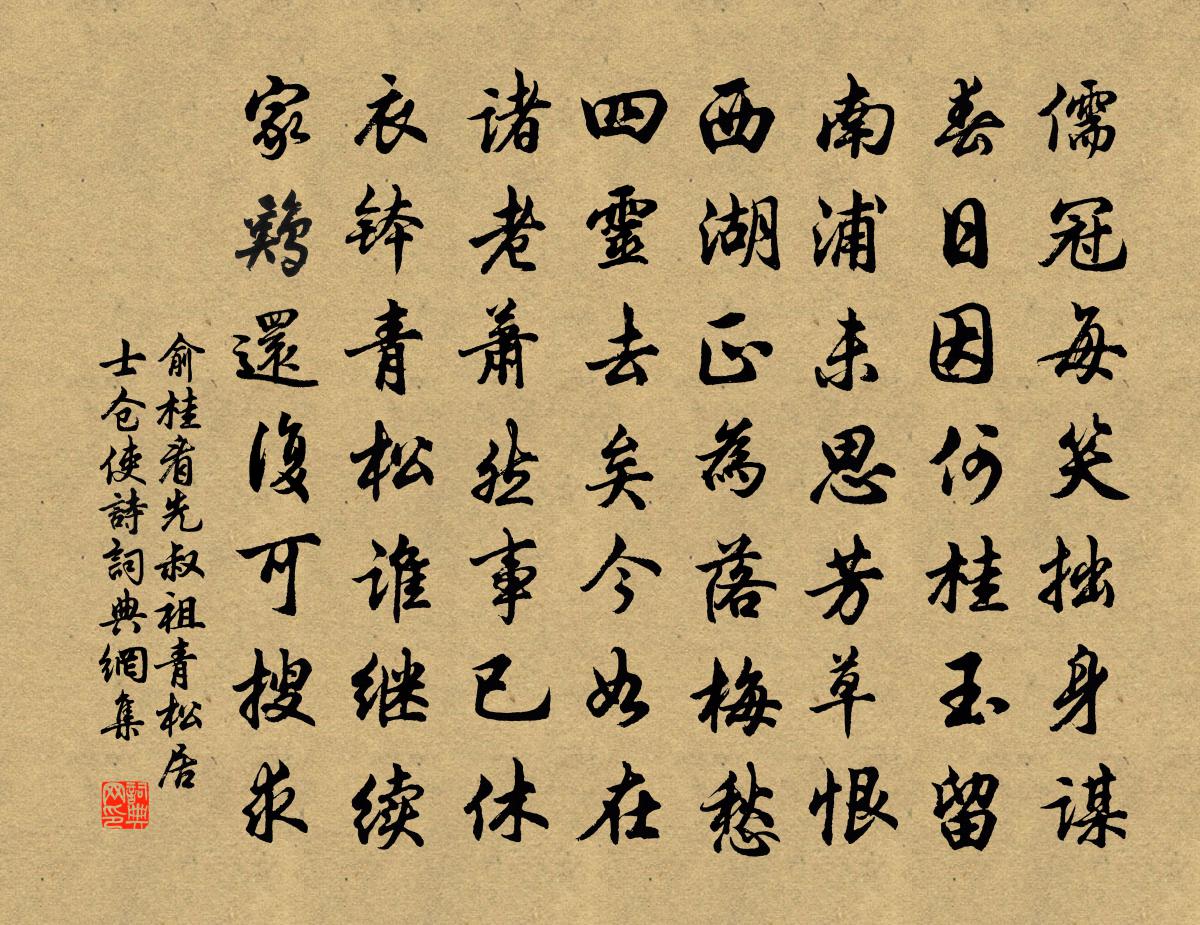 儒冠每笑拙身谋
春日因何桂玉留
南浦未思芳草恨
西湖正為落梅愁
四靈去矣今如在
诸老萧然事已休
衣钵青松谁继续
家鷄還復可搜求
俞桂看先叔祖青松居
士仓使詩詞典網集
詞典网印